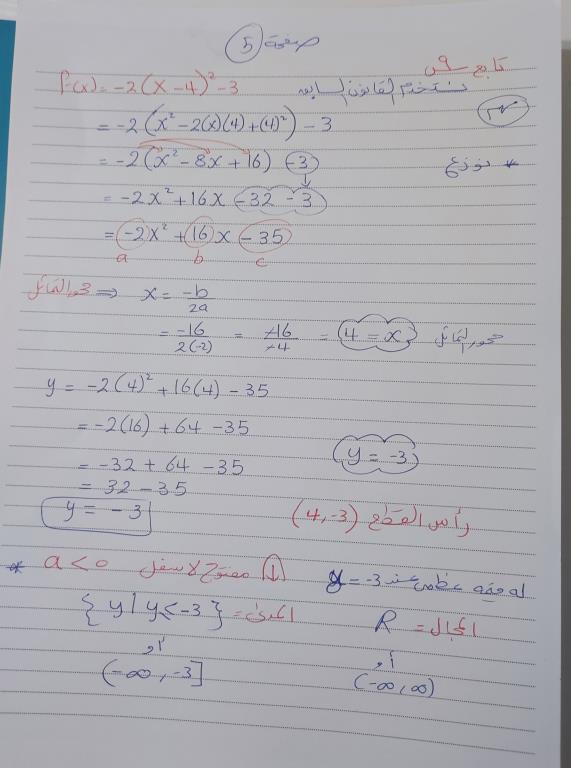 صفحة (5)
تابع س9
نستخدم القانون السابق
f(x) = -2(x-4)² - 3
= -2(x² - 2(x)(4) + (4)²) - 3
= -2(x² - 8x + 16) - 3
* نوزع
= -2x² + 16x - 32 - 3
= -2x² + 16x - 35
a b c
محور التماثل ⇒ x = -b/2a
= -16/2(-2) = -16/-4 = 4 = x محور التماثل
y = -2(4)² + 16(4) - 35
= -2(16) + 64 - 35
= -32 + 64 - 35
y = -3
= 32 - 35
y = -3
رأس القطع (4,-3)
* a < 0 مفتوح لأسفل ↓
له قيمة عظمى عند y = -3
المدى = {y | y ≤ -3}
المجال = R
أو
أو
(-∞, -3]
(-∞, ∞)